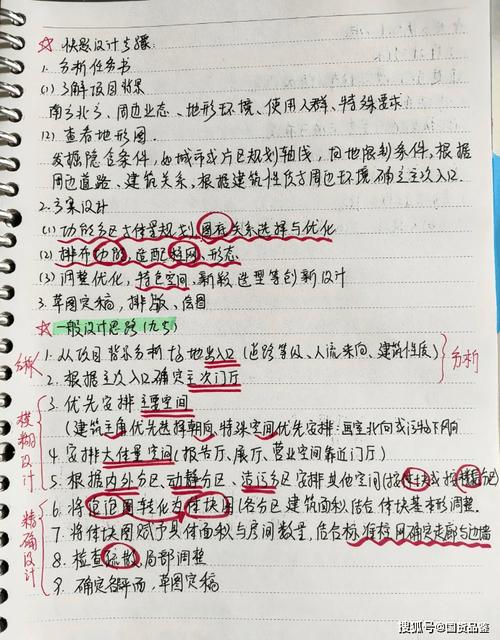 ☆ 快题设计步骤
1. 分析任务书
(1) 了解项目背景
南方北方、周边业态、地形环境、使用人群、特殊要求
(2) 查看地形图
发掘隐含条件，如城市或片已规划轴线，用地限制条件，根据
周边道路、建筑关系，根据建筑性质与周边环境确定主次入口
2. 方案设计
(1) 功能分区大体量规划，图底关系选择与优化
(2) 排布功能，适配柱网、形态
(3) 调整优化，特色空间、新颖造型等创新设计
3. 草图定稿，排版、绘图
☆ 一般设计思路（九步）
分析
1. 从项目背景分析场地出入口（道路等级、人流来向、建筑性质）
2. 根据主次入口确定主次门厅
分析
模糊设计
3. 优先安排主要空间
（建筑主角优先选择朝向，特殊空间优先安排，画室北向或污物下风向
4. 安排大体量空间（报告厅、展厅、营业空间靠近门厅）
5. 根据内外分区、动静分区、洁污分区安排其他空间（按体块或按
精确设计
6. 将泡泡图转化为体块图（各分区建筑面积，结合体块基本形调整。
7. 将体块图赋予具体面积与房间数量，结合标准柱网确定走廊与边墙
8. 检查疏散，局部调整
9. 确定各平面，草图定稿
搜狐号@国货品鉴